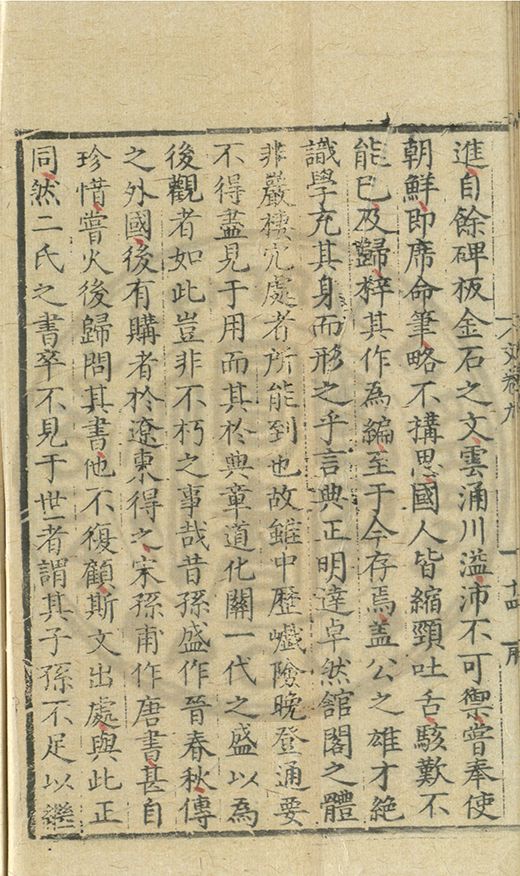 進自餘碑板金石之文雲涌川溢沛不可禦嘗奉使
朝鮮即席命筆略不搆思國人皆縮頸吐舌駭歎不
能已及歸梓其作為編至于今存焉蓋公之雄才絕
識學充其身而形之乎言典正明達卓然舘閣之體
非巖棲穴處者所能到也故雖中歷巇險晚登通要
不得盡見于用而其於典章道化關一代之盛以為
後觀者如此豈非不朽之事哉昔孫盛作晉春秋傳
之外國後有購者於遼東得之宋孫甫作唐書甚自
珍惜嘗火後歸問其書他不復顧斯文出處與此正
同然二氏之書卒不見于世者謂其子孫不足以繼